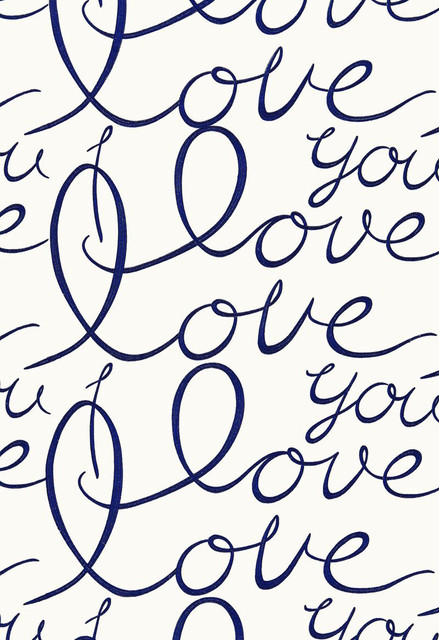 love
I you
love
love
I you
love
love
I you